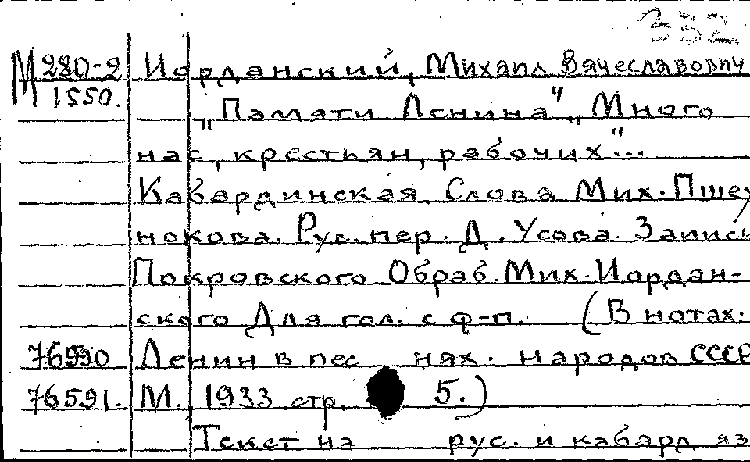 332
М 280-2 Иорданский, Михаил Вячеславович
1550. „Памяти Ленина" „Много
нас, крестьян, рабочих"...
Кабардинская. Слова Мих. Пшеу
нокова. Рус. пер. Д. Усова. Запись
Покровского Обраб. Мих. Иордан-
ского Для гол. с ф-п. (В нотах:
76590 Ленин в пес нях. народов СССР
76591. М. 1933 стр. 5.)
Текст на рус. и кабард яз